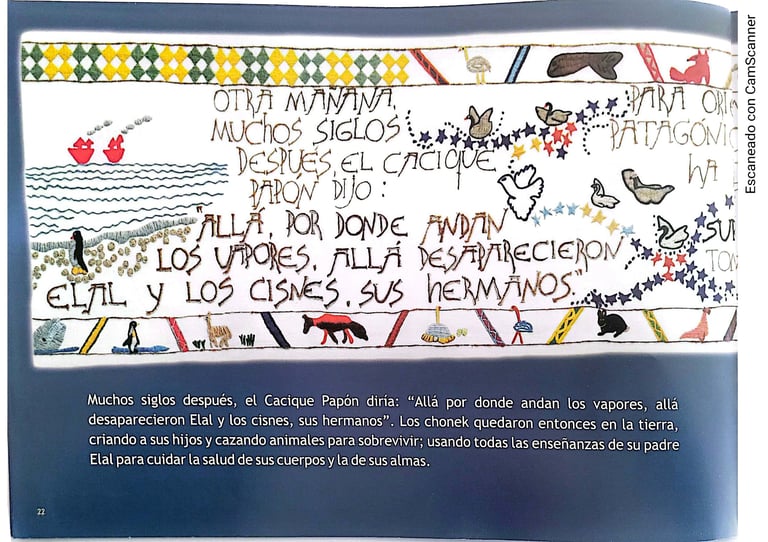 OTRA MAÑANA,
MUCHOS SIGLOS
DESPUÉS, EL CACIQUE
PAPÓN DIJO:
"ALLÁ, POR DONDE ANDAN
LOS VAPORES, ALLÁ DESAPARECIERON
ELAL Y LOS CISNES, SUS HERMANOS."
PARA
HA
Muchos siglos después, el Cacique Papón diria: “Allá por donde andan los vapores, allá
desaparecieron Elal y los cisnes, sus hermanos”. Los chonek quedaron entonces en la tierra,
criando a sus hijos y cazando animales para sobrevivir; usando todas las enseñanzas de su padre
Elal para cuidar la salud de sus cuerpos y la de sus almas.
22
Escaneado con CamScanner